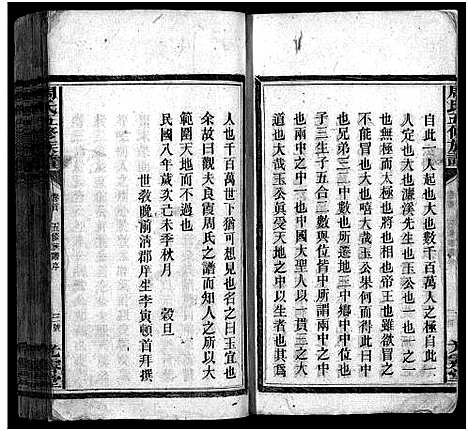 周氏五修族譜
自此一人起也大也數千百萬人之極自此一
人定也大也濂溪先生也王公也一也一之一
也無極而太極也與也相也帝也王也聖也無
不能冒也大也嘻大哉玉公果何而得此曰中
也兄弟三二中數也所遷地三中鄉中中位也
子三生子五合二數與位皆中所謂兩中之中
也兩中之中一也中國大聖人以一貫之曰中
道也大哉玉公眞受天地之中以生者也其爲
人也千百萬世下猶可想見也名之曰玉宜也
余故曰觀夫良霞周氏之譜而知生人之所以大
天地而不過也
民國八年歲次己未季秋月 穀旦
世敎晚前淯郡庠生李寅頓首拜撰
周氏五修族譜
卷首 五修族譜序
三號